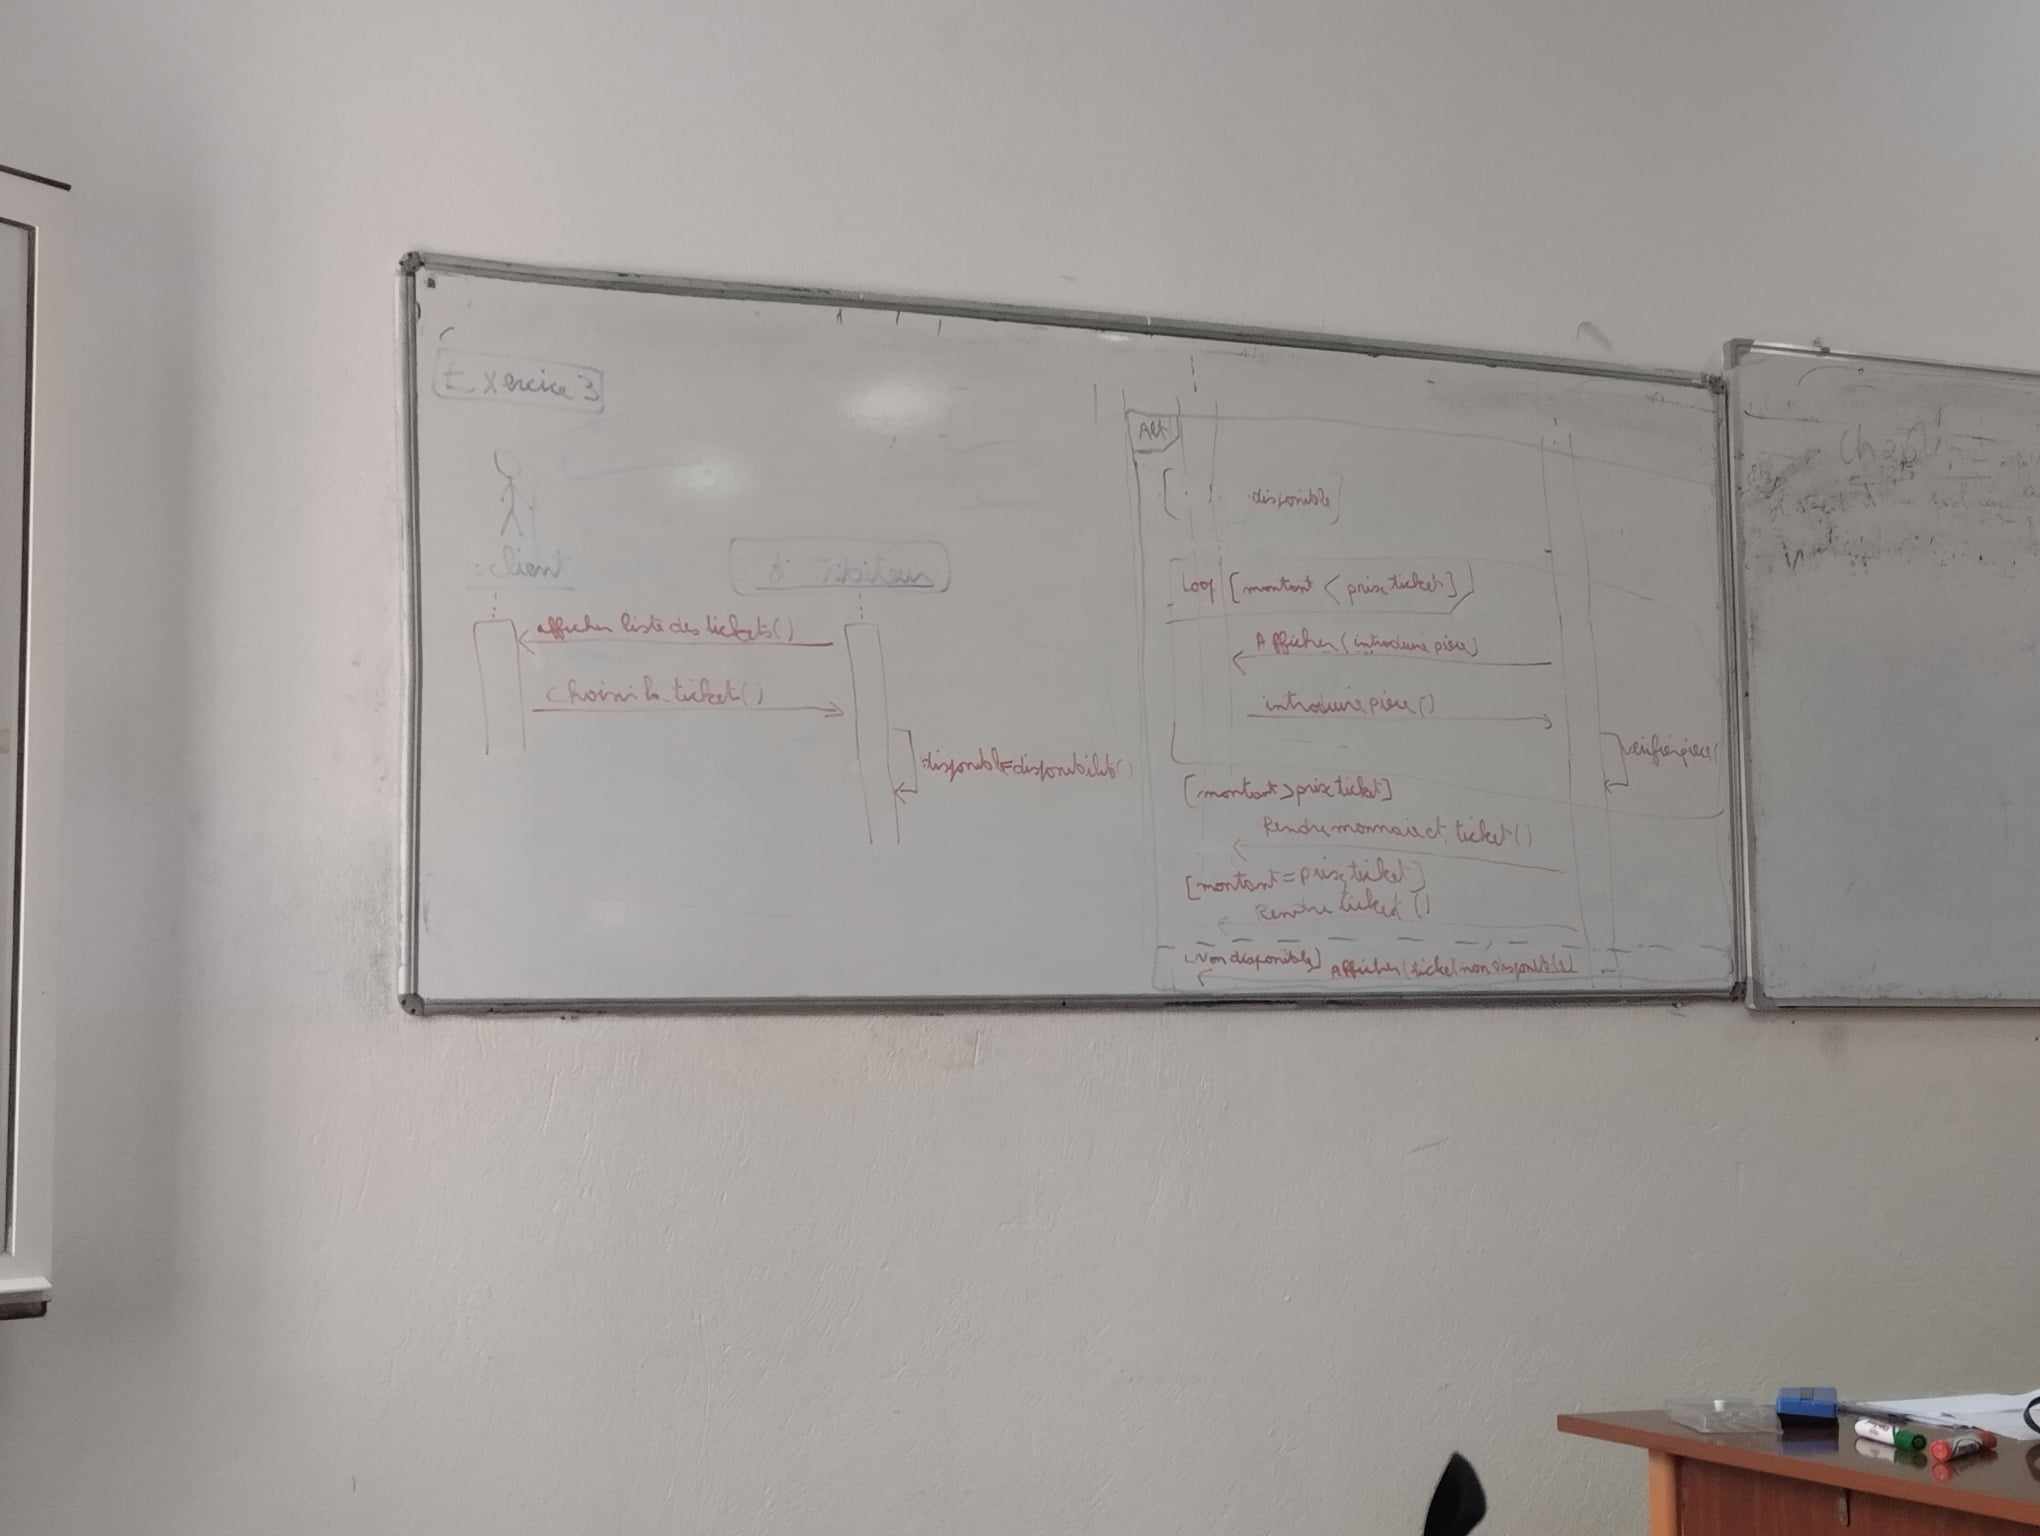 Exercice 3
:client
afficher liste des tickets()
choisir le ticket()
disponible=disponibilité()
Alt
disponible]
Loop [montant < prix ticket]
Afficher(introduire pièce)
introduire pièce()
vérifier pièce(
[montant > prix ticket]
Rendre monnaie et ticket()
[montant = prix ticket]
Rendre ticket()
[Non disponible] Afficher(ticket non disponible)